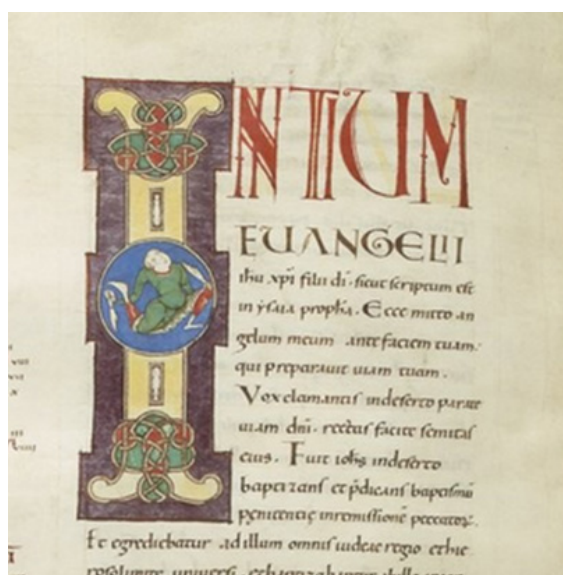 INITIUM
EUANGELII
ihu xpi filii di · sicut scriptum est
in ysaia propha · Ecce mitto an
gelum meum ante faciem tuam ·
qui preparauit uiam tuam ·
Vox clamantis in deserto parate
uiam dni · rectas facite semitas
eius · Fuit iohs in deserto
baptizans et p̄dicans baptismū
penitentię in remissionē peccatoꝝ ·
Et egrediebatur ad illum omnis iudeae regio et hie
rosolimite uniuersi et baptizabantur